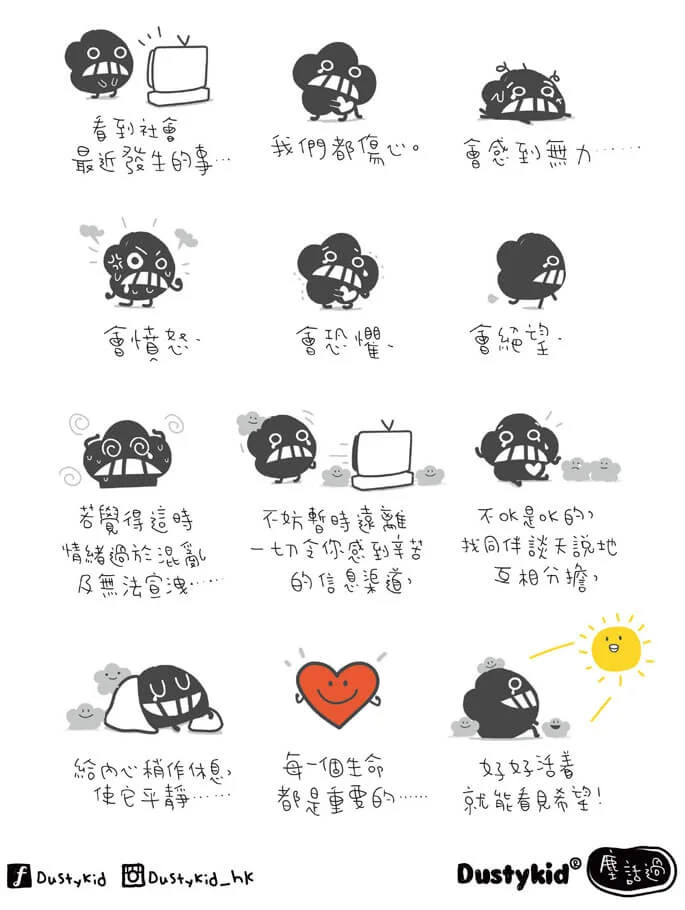 看到社會
最近發生的事…
我們都傷心。
會感到無力……
會憤怒、
會恐懼、
會絕望、
若覺得這時
情緒過於混亂
及無法宣洩……
不妨暫時遠離
一切令你感到辛苦
的信息渠道,
不OK是OK的,
找同伴談天說地
互相分擔,
給內心稍作休息,
使它平靜……
每一個生命
都是重要的……
好好活着
就能看見希望!
f Dustykid
Dustykid_hk
Dustykid®
塵話過